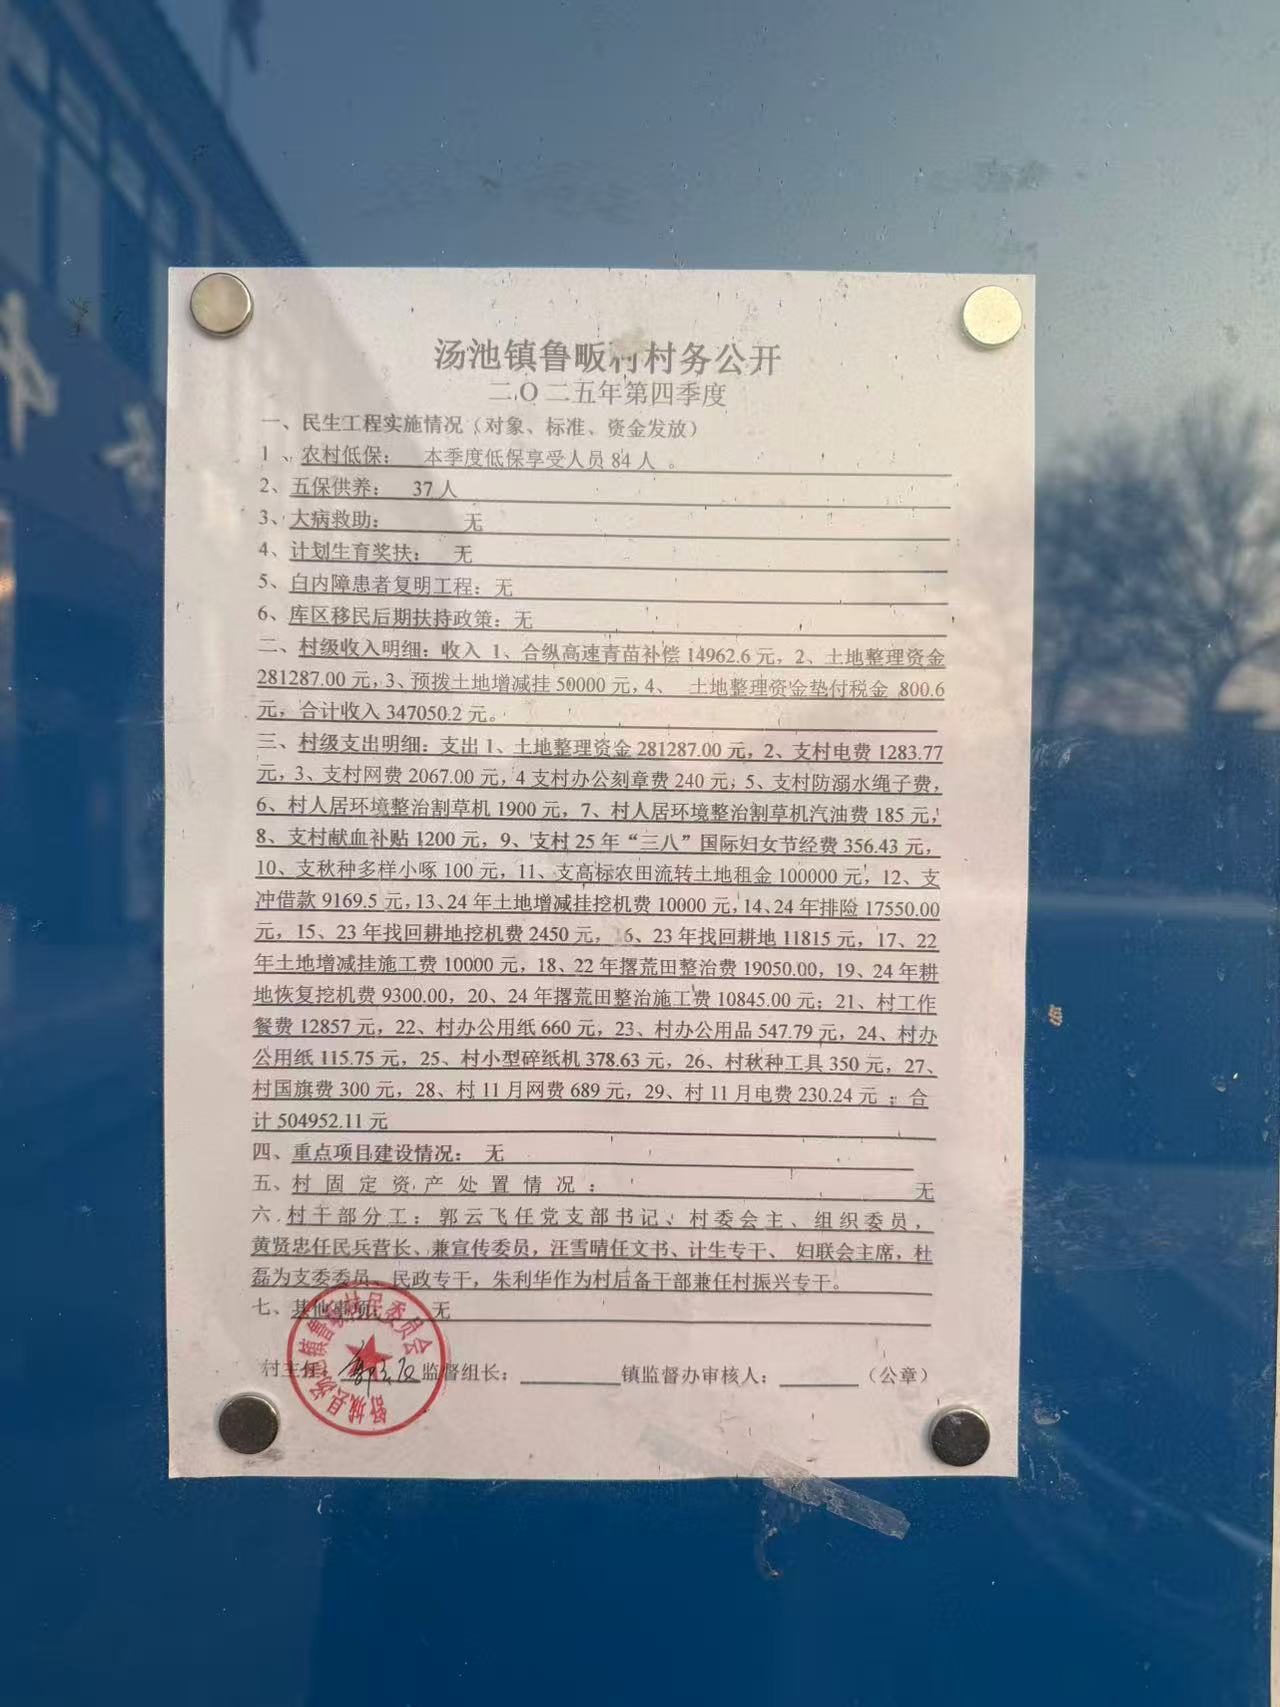 汤池镇鲁畈村村务公开
二〇二五年第四季度
一、民生工程实施情况（对象、标准、资金发放）
1、农村低保： 本季度低保享受人员 84 人 。
2、五保供养： 37 人
3、大病救助： 无
4、计划生育奖扶： 无
5、白内障患者复明工程：无
6、库区移民后期扶持政策：无
二、村级收入明细：收入 1、合纵高速青苗补偿 14962.6 元，2、土地整理资金
281287.00 元，3、预拨土地增减挂 50000 元，4、 土地整理资金垫付税金 800.6
元，合计收入 347050.2 元。
三、村级支出明细：支出 1、土地整理资金 281287.00 元，2、支村电费 1283.77
元，3、支村网费 2067.00 元，4 支村办公刻章费 240 元，5、支村防溺水绳子费，
6、村人居环境整治割草机 1900 元，7、村人居环境整治割草机汽油费 185 元，
8、支村献血补贴 1200 元，9、支村 25 年“三八”国际妇女节经费 356.43 元，
10、支秋种多样小啄 100 元，11、支高标农田流转土地租金 100000 元，12、支
冲借款 9169.5 元，13、24 年土地增减挂挖机费 10000 元，14、24 年排险 17550.00
元，15、23 年找回耕地挖机费 2450 元，16、23 年找回耕地 11815 元，17、22
年土地增减挂施工费 10000 元，18、22 年撂荒田整治费 19050.00，19、24 年耕
地恢复挖机费 9300.00，20、24 年撂荒田整治施工费 10845.00 元；21、村工作
餐费 12857 元，22、村办公用纸 660 元，23、村办公用品 547.79 元，24、村办
公用纸 115.75 元，25、村小型碎纸机 378.63 元，26、村秋种工具 350 元，27、
村国旗费 300 元，28、村 11 月网费 689 元，29、村 11 月电费 230.24 元 ；合
计 504952.11 元
四、重点项目建设情况： 无
五、村固定资产处置情况： 无
六、村干部分工：郭云飞任党支部书记、村委会主、组织委员，
黄贤忠任民兵营长、兼宣传委员，汪雪晴任文书、计生专干、 妇联会主席，杜
磊为支委委员、民政专干，朱利华作为村后备干部兼任村振兴专干。
七、其他事项： 无
村主任： 监督组长： 镇监督办审核人： （公章）
舒城县汤池镇鲁畈村村民委员会